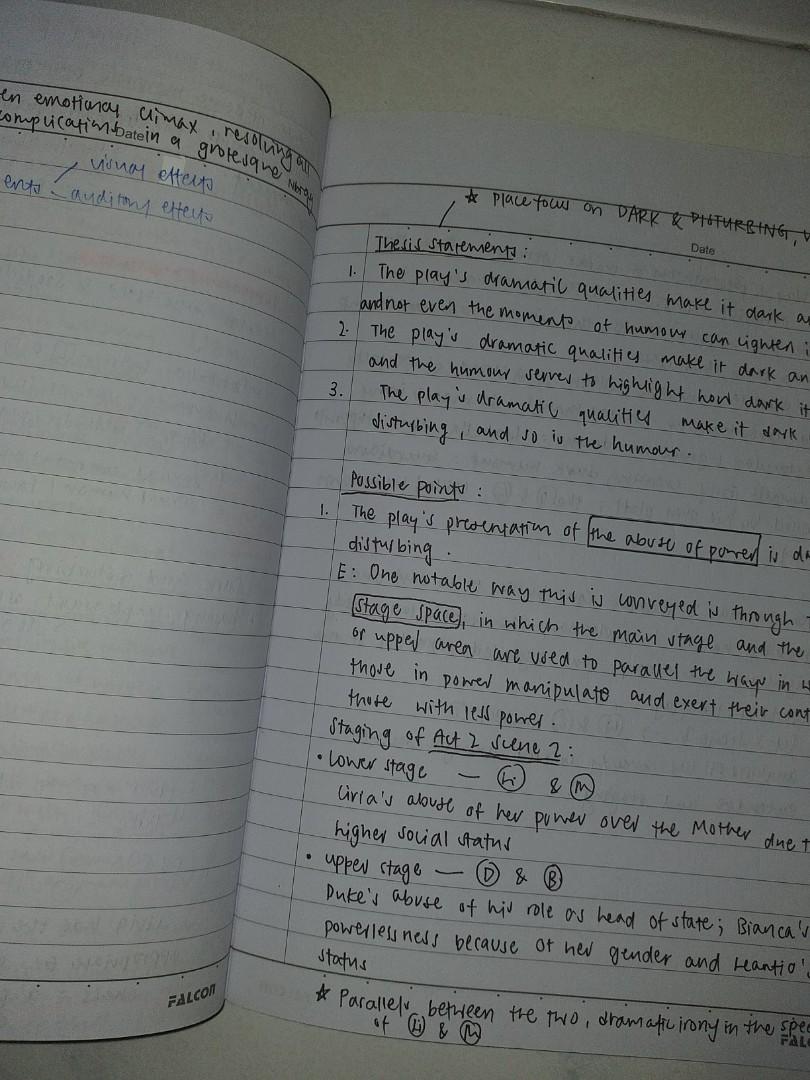 en emotional climax, resolving all
complications in a grotesque
Date
visual effects
ents auditory effects
FALCON
☆ Place focus on DARK & DISTURBING,
Date
Thesis statements:
1. The play's dramatic qualities make it dark
and not even the moments of humour can lighten
2. The play's dramatic qualities make it dark an
and the humour serves to highlight how dark it
3. The play's dramatic qualities make it dark
disturbing, and so is the humour.
Possible points:
1. The play's presentation of the abuse of power is
disturbing.
E: One notable way this is conveyed is through
stage space, in which the main stage and the
or upper area are used to parallel the ways in
those in power manipulate and exert their cont
those with less power.
Staging of Act 2 Scene 2:
• lower stage — Li & M
Livia's abuse of her power over the Mother due
higher social status
• upper stage — D & B
Duke's abuse of his role as head of state; Bianca's
powerlessness because of her gender and Leantio's
status
☆ Parallels between the two, dramatic irony in the
of Li & M